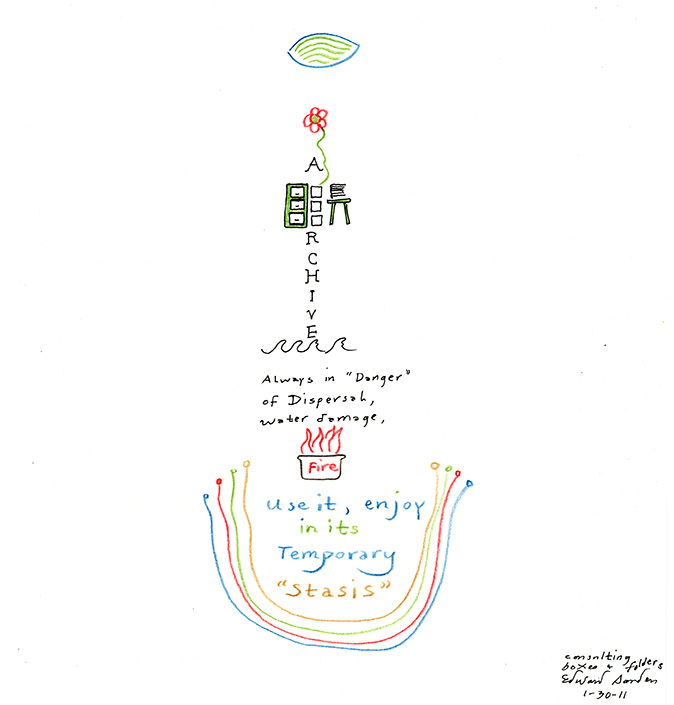 A
R
C
H
I
V
E
Always in "Danger"
of Dispersal,
water damage,
Fire
use it, enjoy
in its
Temporary
"Stasis"
consulting
boxes + folders
Edward
1-30-11